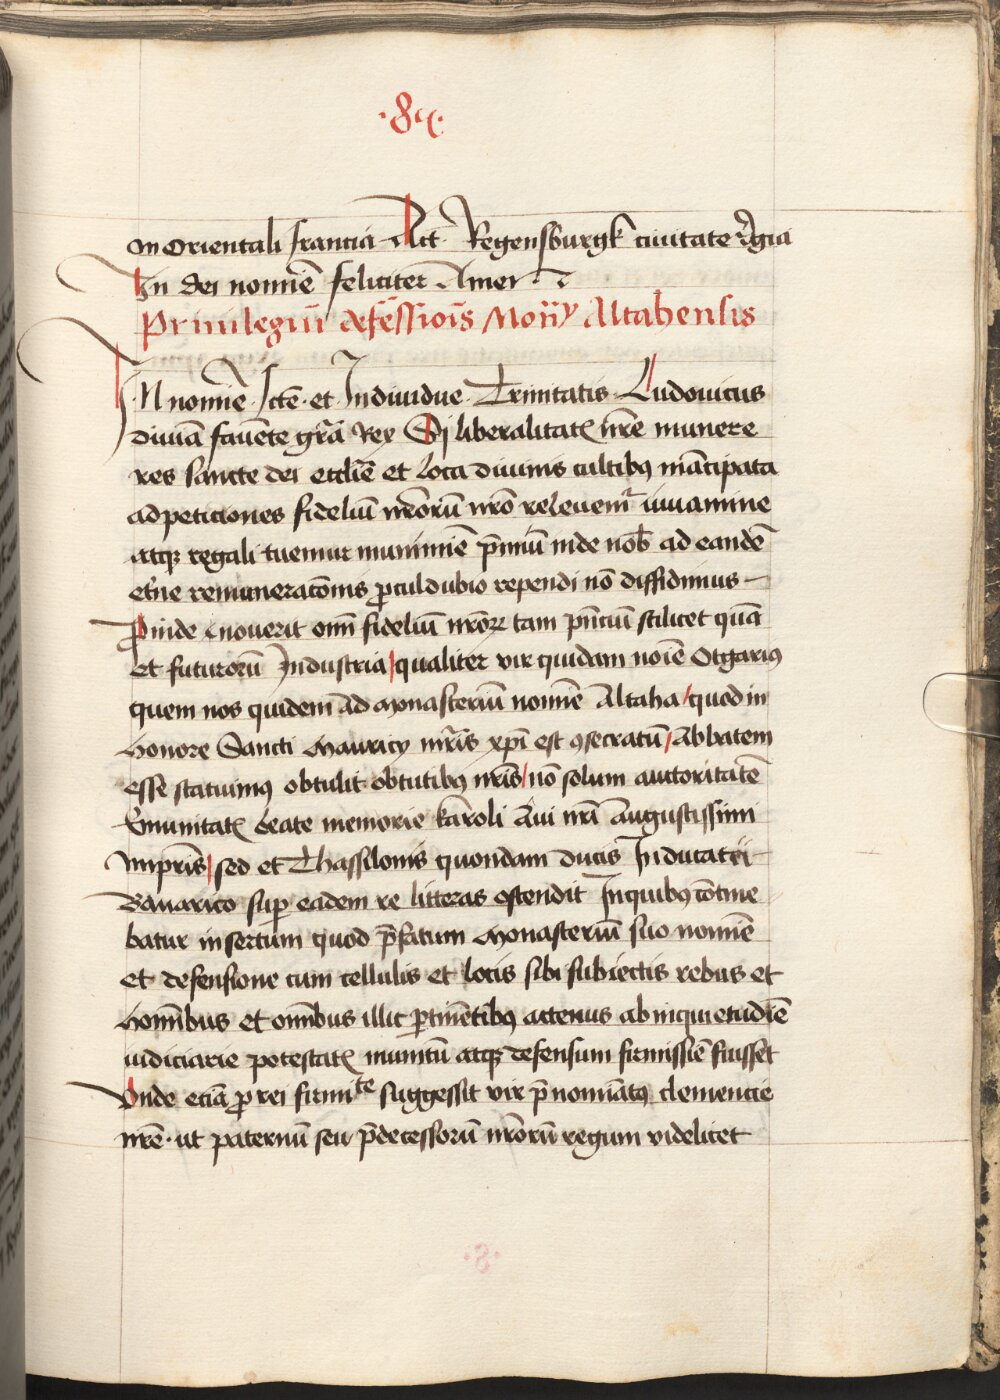 in orientali francia Act̄ Regensburgk ciuitate r̄gia
In dei nomīe feliciter Amen
Priuilegiū defēssiōis Mon̄ẏ Altahensis
IN nomīe sctē et Indiuidue Trinitatis Ludouicus
diuīa fauēte gr̄a Rex Si liberalitatꝭ nr̄e munere
res sancte dei eccliē et loca diuinis cultibꝫ mācipata
ad peticiones fideliū nr̄orū nr̄o releuemꝰ iuuamine
atqꝫ regali tuemur munimīe p̄miū inde nob̄ ad eandē
et̄ne remuneracōnis ꝓculdubio rependi nō diffidimus
Proinde nouerit om̄i fideliū nr̄orꝝ tam pn̄ciū scilicet quā
et futurorū Industria qualiter vir quidam noīe Otgariꝰ
quem nos quidem ad monasteriū nomīe Altaha quod in
honore Sancti Mauricy mr̄is xp̄i est ꝯsecratū Abbatem
esse statuimꝰ obtulit obtutibꝫ nr̄is nō solum auctoritatē
Emunitatꝭ beate memorie karoli Aui nr̄i Augustissimi
Imp̄ris sed et Thassilonis quondam ducis In ducatu
Bauarico suꝑ eadem re litteras ostendit In quibꝫ cōtine
batur insertum quod p̄fatum Monasteriū suo nomīe
et defensione cum cellulis et locis sibi subiectis rebus et
hom̄ibus et om̄ibus illic ꝑtinētibꝫ actenus ab inquietudīe
iudiciarie potestatꝭ munitū atqꝫ defensum firmissiē fuisset
Vnde eciā ꝓ rei firmitᵗᵉ suggessit vir p̄nomiātꝰ clemencie
nr̄e ut paternū seu p̄decessorū nr̄orū regum videlicet